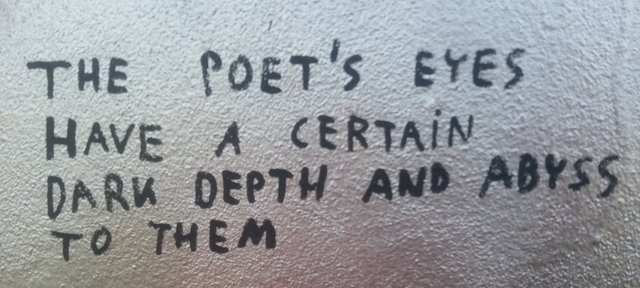 THE POET'S EYES
HAVE A CERTAiN
DARK DEPTH AND ABYSS
TO THEM